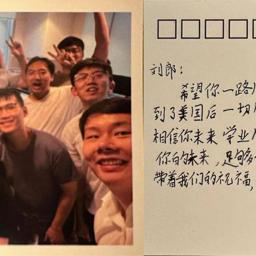 刘郎：
希望你一路
到了美国后一切
相信你未来 学业
你的未来，足够
带着我们的祝福，